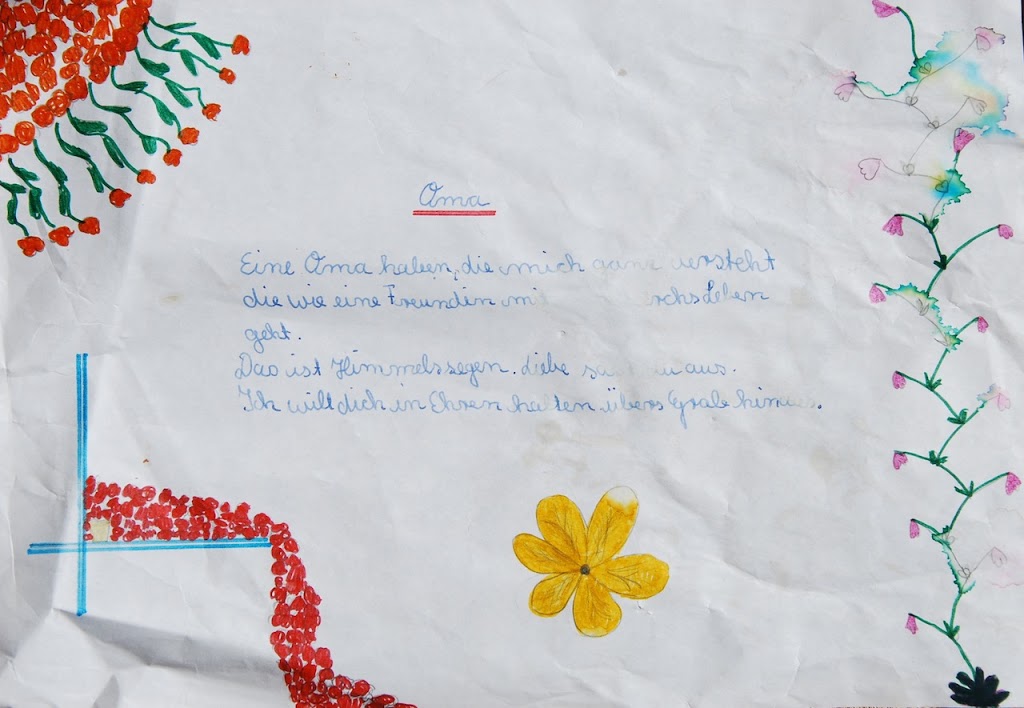 Oma
Eine Oma haben, die mich ganz versteht
die wie eine Freundin mi rchs Leben
geht.
Das ist Himmelssegen. Liebe aus.
Ich will dich in Ehren halten übers Grab hinaus.